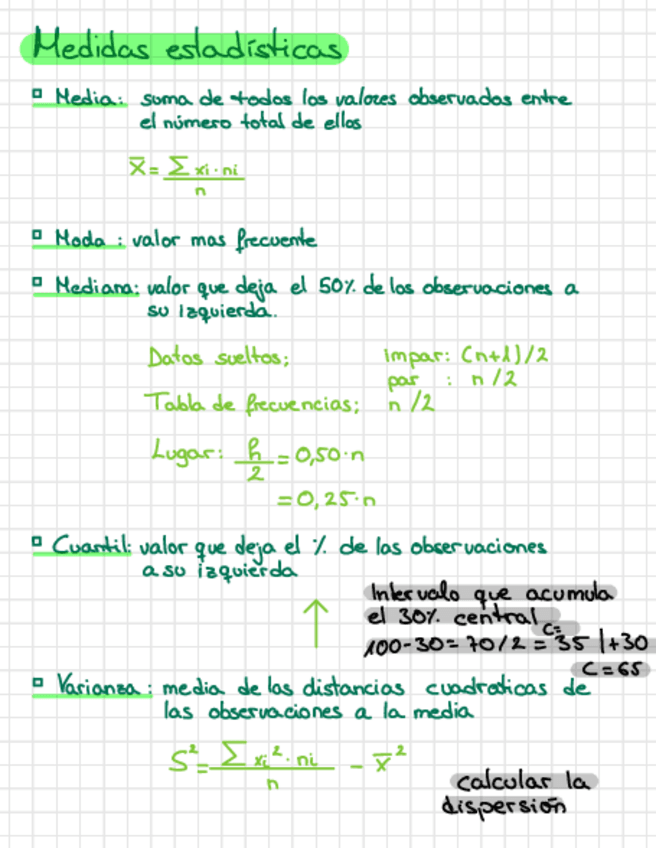 Medidas estadísticas
▫ Media: suma de todos los valores observados entre
el número total de ellos
x̄ = Σ xi · ni / n
▫ Moda : valor mas frecuente
▫ Mediana: valor que deja el 50% de las observaciones a
su izquierda.
Datos sueltos; impar: (n+1)/2
par : n/2
Tabla de frecuencias; n/2
Lugar: h/2 = 0,50·n
= 0,25·n
▫ Cuantil: valor que deja el % de las observaciones
a su izquierda
↑
Intervalo que acumula
el 30% central
100-30 = 70/2 = C= 35 |+30
C=65
▫ Varianza : media de las distancias cuadraticas de
las observaciones a la media
S² = Σ xi² · ni / n - x̄²
calcular la
dispersión